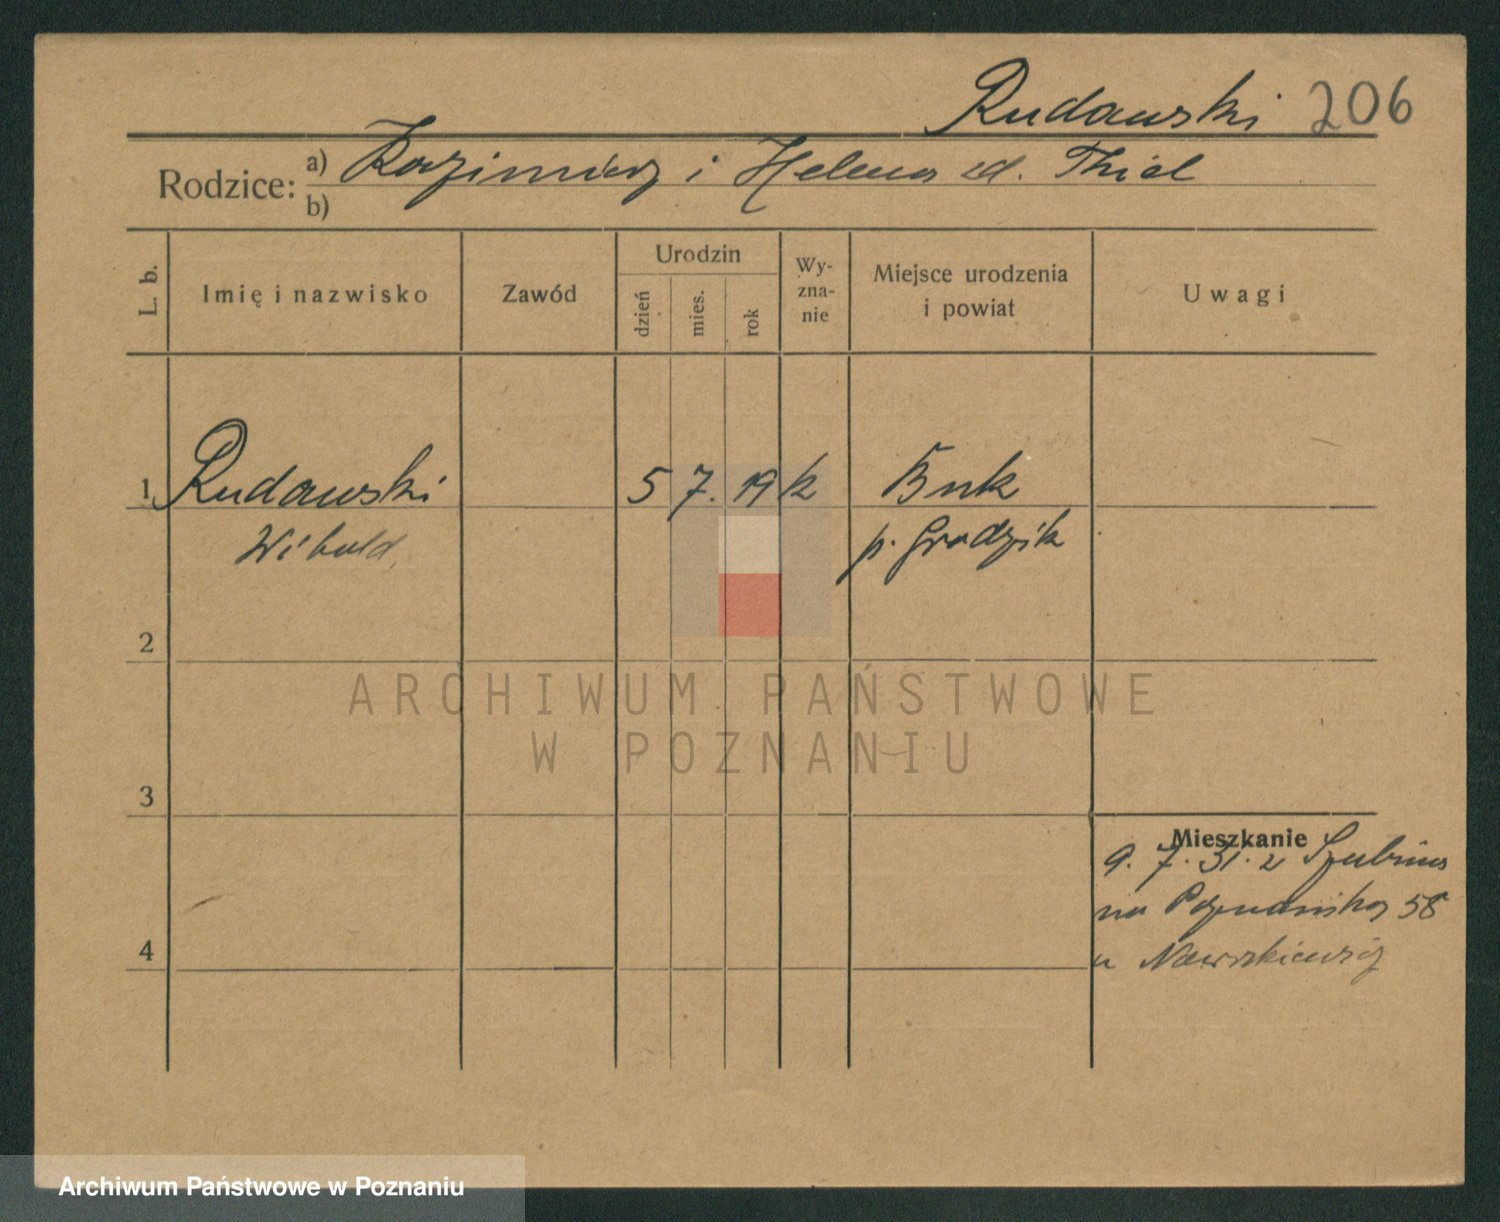 Rudawski 206
Rodzice: a) Kazimierz i Helena zd. Thiel
b)
L. b.
Imię i nazwisko
Zawód
Urodzin
dzień
mies.
rok
Wy-
zna-
nie
Miejsce urodzenia
i powiat
Uwagi
1 Rudawski 5 7. 19 k Buk
Witold p. Grodzisk
2
ARCHIWUM PAŃSTWOWE
W POZNANIU
3
Mieszkanie
9. 7. 31. z Szubina
4
na Poznańską 58
u
Archiwum Państwowe w Poznaniu